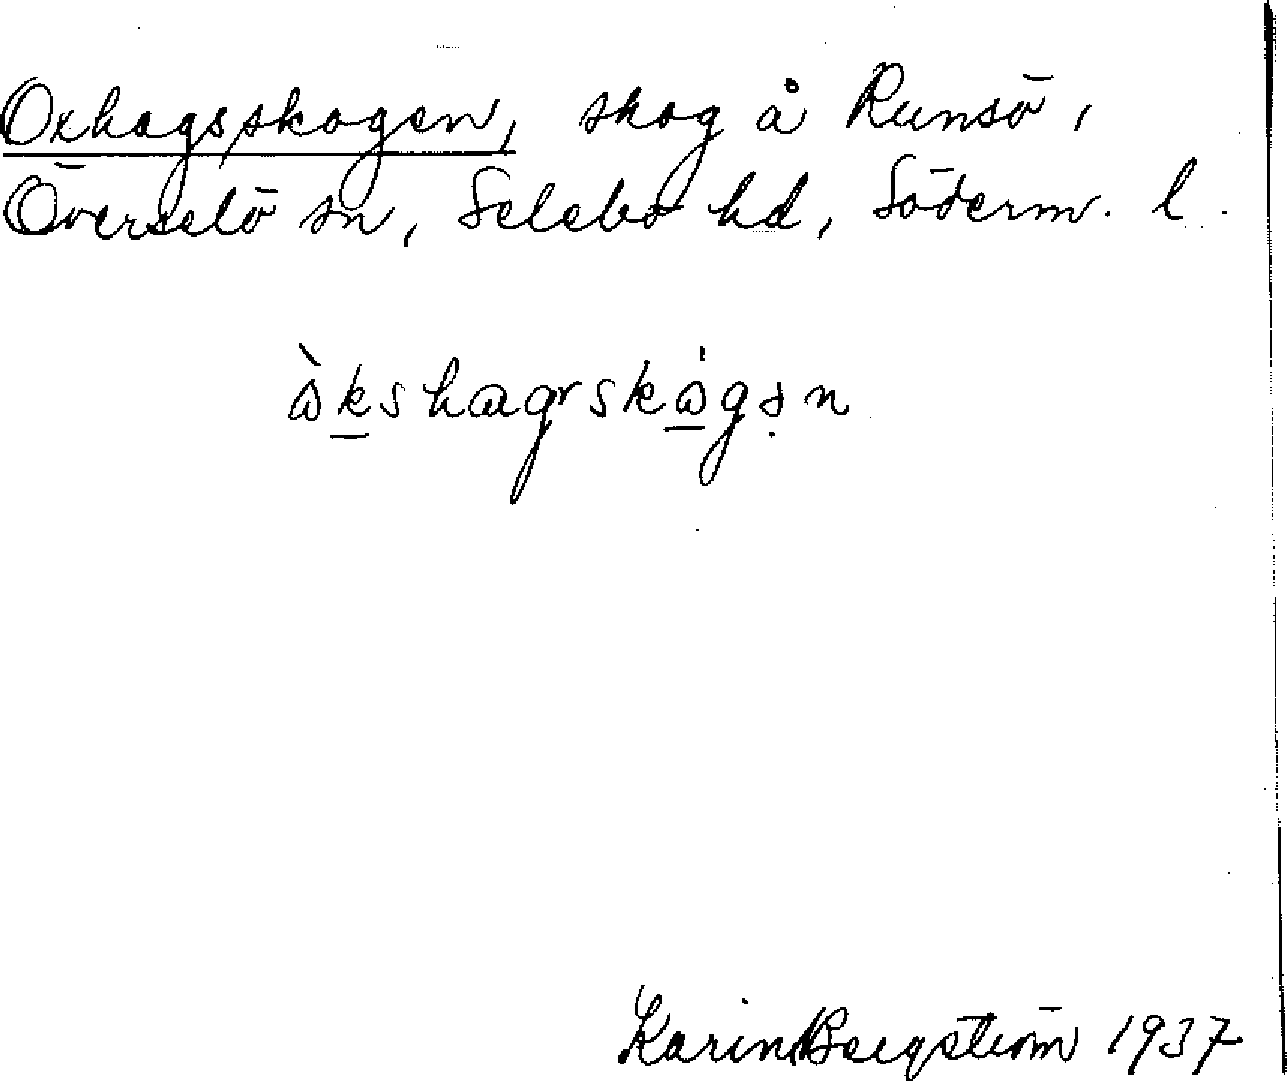 Oxhagsskogen, skog å Runsö,
Överselö sn, Selebo hd, Söderm. l.
Karin Bergström 1937